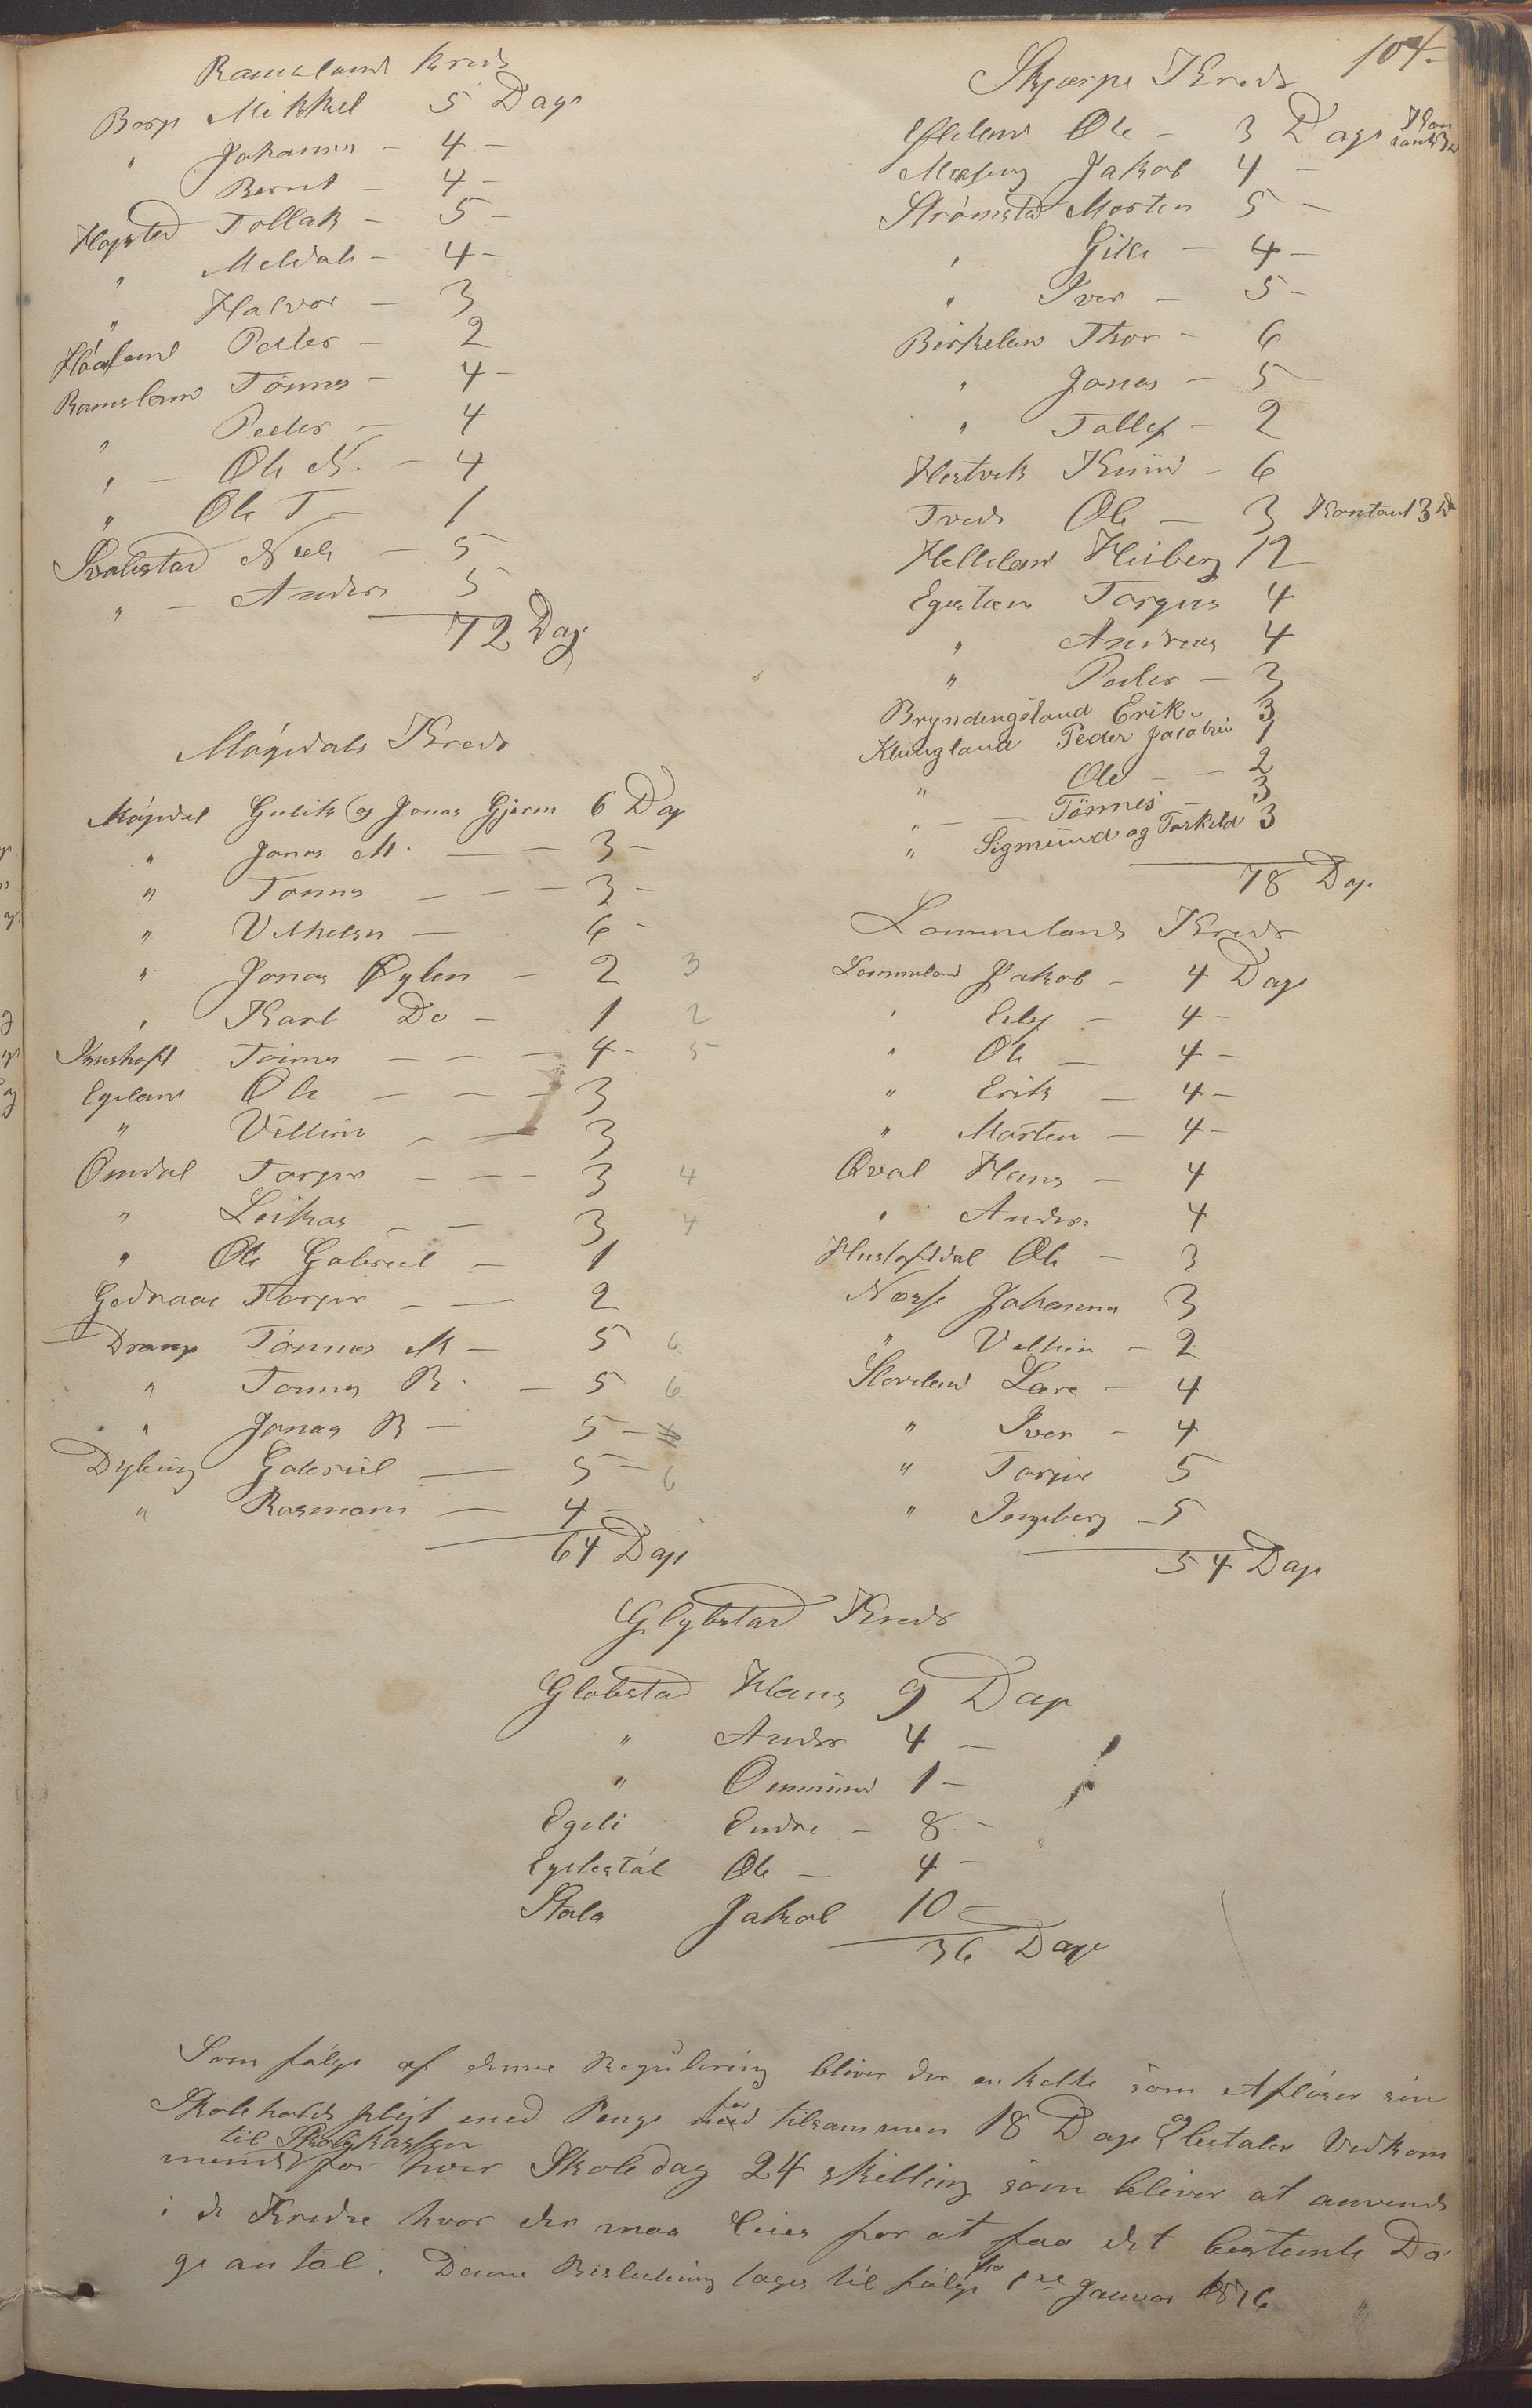 104.
Ramsland Kreds
Berge Mikkel 5 Dage
" Johannes - 4 -
Bernt - 4 -
Hegestad Tollak - 5 -
" Meldal - 4 -
" Halvor - 3
Haaland Peder - 2
Ramsland Tönnes - 4 -
" Peder - 4
" - Ole N. - 4
" Ole T - 1
Svalestad Nils - 5
" - Anders 5
72 Dage
Mögedals Kreds
Mögedal Gulik og Jonas Gjerm 6 Dage
" Jonas M. - - 3 -
" Tönnes - - - 3 -
" Vilhelm - 6 -
" Jonas Öylen - 2 3
" Karl Do - 1 2
Tönnes - - - 4 - 5
Egeland Ole - - - 3
" Villum - - 3
Omdal Torger - - - 3 4
" Leikas - - 3 4
" Ole Gabriel - 1
Godraae Torger - - 2
Drange Tönnes M - 5 6
" Tönnes R. - 5 6
" Jonas R - 5 -
Dybing Gabriel - 5 - 6
" Rasmus - 4 -
64 Dage
Skjærpe Kreds
Ole - 3 Dage Kontant 3 D
Jakob 4 -
Strömstad Morten 5 -
" Gike - 4 -
" Iver - 5 -
Birkeland Thor - 6
" Jonas - 5
" Tollef - 2
Hestvek Knud - 6
Tveds Ole - 3 Kontant 3 D
Helleland Heiberg 12
Egestøen Torgus 4
" Andreas 4
" Peder - 3
Bryndingsland Erik - 3
Klungland Peder Jacobsen 1
" Ole - - 2
" - - Tönnes 3
" Sigmund og Torkild 3
78 Dage
Lommelands Kreds
Lommeland Jakob - 4 Dage
" Eilef - 4 -
" Ole - 4 -
" Erik - 4 -
" Morten - 4 -
Qval Hans - 4
" Anders 4
Hustoftdal Ole - 3
Næsse Johannes 3
" Vellum - 2
Stoveland Lars - 4
" Iver - 4
" Torger 5
" Ingeborg - 5
54 Dage
Glybstad Kreds
Globstad Hans 9 Dage
" Anders 4 -
" Ommund 1 -
Egeli Endre - 8 -
Egelestöl Ole - 4 -
Stala Jakob 10 -
36 Dage
Som fölge af denne Regulering bliver den enkelte som Aflöser sin
Skoleholds pligt med Penge tilsammen 18 Dage og betaler Vedkom
til Skolekassen
mende for hver Skoledag 24 skilling som bliver at anvende
i de Kredse hvor der maa leies for at faa det bestemte Da
geantal. Denne Beslutning tages til fölge fra 1ste Januar 1876